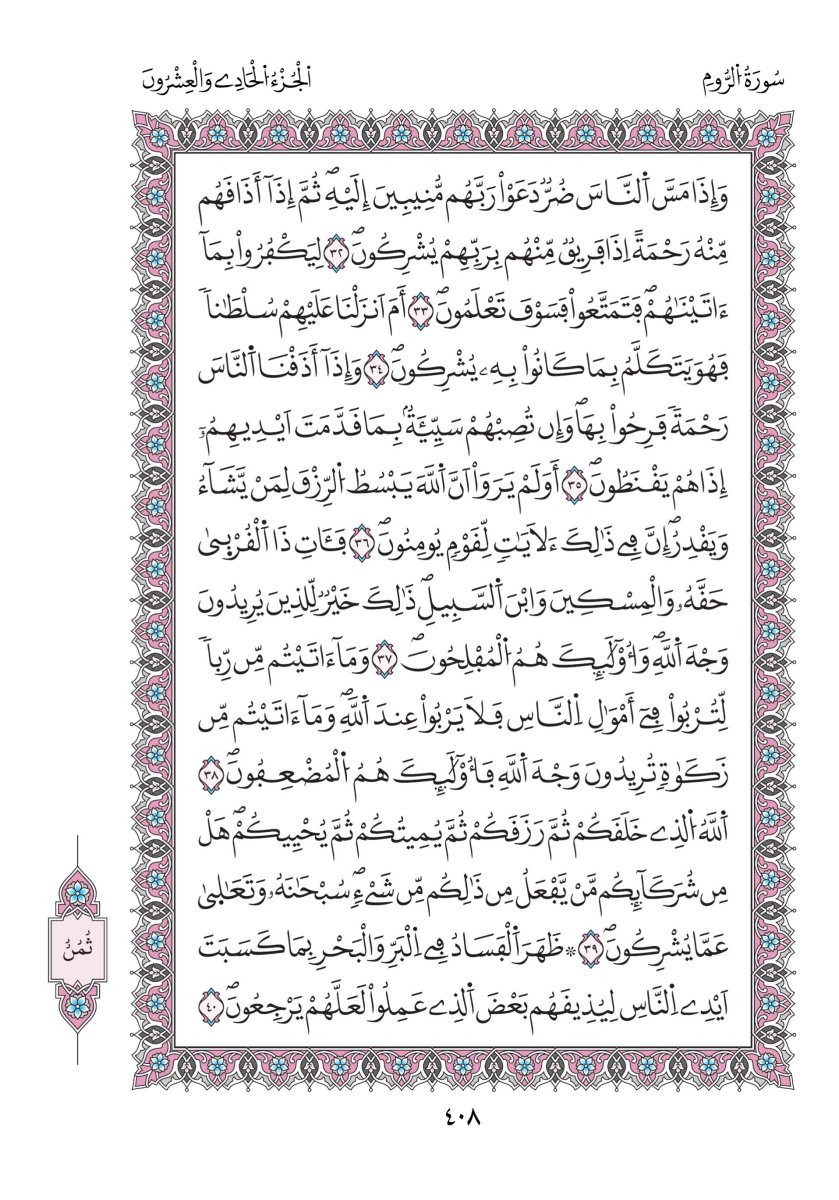 سُورَةُ اُلرُّومِ
اَلْجُزْءُ اُلْحَادِے وَالْعِشْرُونَ
وَإِذَا مَسَّ اَلنَّاسَ ضُرّٞ دَعَوْاْ رَبَّهُم مُّنِيبِينَ إِلَيْهِۖ ثُمَّ إِذَآ أَذَاقَهُم
مِّنْهُ رَحْمَةً اِذَا فَرِيقٞ مِّنْهُم بِرَبِّهِمْ يُشْرِكُونَۖ ٣٢ لِيَكْفُرُواْ بِمَآ
ءَاتَيْنَٰهُمْۖ فَتَمَتَّعُواْ فَسَوْفَ تَعْلَمُونَۖ ٣٣ أَمَ اَنزَلْنَا عَلَيْهِمْ سُلْطَٰناٗ
فَهُوَ يَتَكَلَّمُ بِمَا كَانُواْ بِهِۦ يُشْرِكُونَۖ ٣٤ وَإِذَآ أَذَقْنَا اَلنَّاسَ
رَحْمَةٗ فَرِحُواْ بِهَاۖ وَإِن تُصِبْهُمْ سَيِّئَةُۢ بِمَا قَدَّمَتَ اَيْدِيهِمُۥٓ
إِذَا هُمْ يَقْنَطُونَۖ ٣٥ أَوَلَمْ يَرَوَاْ اَنَّ اَللَّهَ يَبْسُطُ اُلرِّزْقَ لِمَنْ يَّشَآءُ
وَيَقْدِرُۖ إِنَّ فِے ذَٰلِكَ ءَلَايَٰتٖ لِّقَوْمٖ يُومِنُونَۖ ٣٦ فَـَٔاتِ ذَا اَلْقُرْب۪يٰ
حَقَّهُۥ وَالْمِسْكِينَ وَابْنَ اَلسَّبِيلِۖ ذَٰلِكَ خَيْرٞ لِّلذِينَ يُرِيدُونَ
وَجْهَ اَللَّهِۖ وَأُوْلَٰٓئِكَ هُمُ اُلْمُفْلِحُونَۖ ٣٧ وَمَآ ءَاتَيْتُم مِّن رِّباٗ
لِّتُرْبُواْ فِےٓ أَمْوَٰلِ اِلنَّاسِ فَلَا يَرْبُواْ عِندَ اَللَّهِۖ وَمَآ ءَاتَيْتُم مِّن
زَكَوٰةٖ تُرِيدُونَ وَجْهَ اَللَّهِ فَأُوْلَٰٓئِكَ هُمُ اُلْمُضْعِفُونَۖ ٣٨
اَللَّهُ اُلذِے خَلَقَكُمْ ثُمَّ رَزَقَكُمْ ثُمَّ يُمِيتُكُمْ ثُمَّ يُحْيِيكُمْۖ هَلْ
مِن شُرَكَآئِكُم مَّنْ يَّفْعَلُ مِن ذَٰلِكُم مِّن شَےْءٖۖ سُبْحَٰنَهُۥ وَتَعَٰل۪يٰ
عَمَّا يُشْرِكُونَۖ ٣٩ ۞ ظَهَرَ اَلْفَسَادُ فِے اِلْبَرِّ وَالْبَحْرِ بِمَا كَسَبَتَ
اَيْدِے اِلنَّاسِ لِيُذِيقَهُم بَعْضَ اَلذِے عَمِلُواْ لَعَلَّهُمْ يَرْجِعُونَۖ ٤٠
ثُمُنُ
٤٠٨